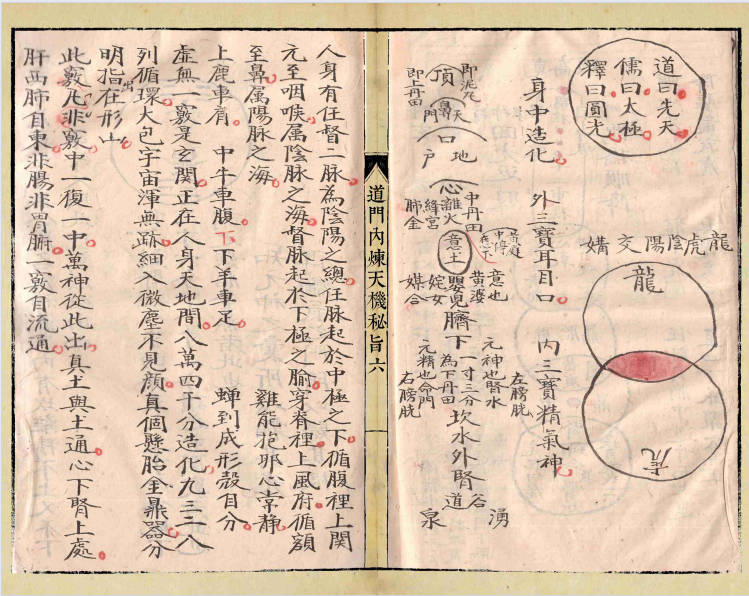 道曰先天
儒曰太極
釋曰圓光
龍虎陰陽交媾
龍
虎
身中造化　外三寶耳目口　內三寶精氣神
即泥丸
頂
即上田丹
天
鼻
門
口
地
戶
心
中丹田
離火
絳宮
肺金
黃庭
意土
意也
黃婆
嬰兒
姹女
媒合
臍下一寸三分
為下丹田
元神也腎水
元精也命門
左膀胱
右膀胱
坎水外腎
谷
道
湧
泉
道門內煉天機秘旨六
人身有任督二脉為陰陽之總任脉起於中極之下循腹裡上関
元至咽喉属陰脉之海督脉起於下極之腧穿脊裡上風府循額
至鼻属陽脉之海　雞能抱卵心常靜
上鹿車肩　中牛車腹　下羊車足　蟬到成形殼自分
虛無一竅是玄関正在人身天地間八萬四千分造化九三二八
列循環大包宇宙渾無跡細入微塵不見顔真個懸胎金鼎器分
明指出在形山
此竅凡非竅中一復一中萬神從此出真土與土通心下腎上處
肝西肺自東非腸非胃腑一竅自流通